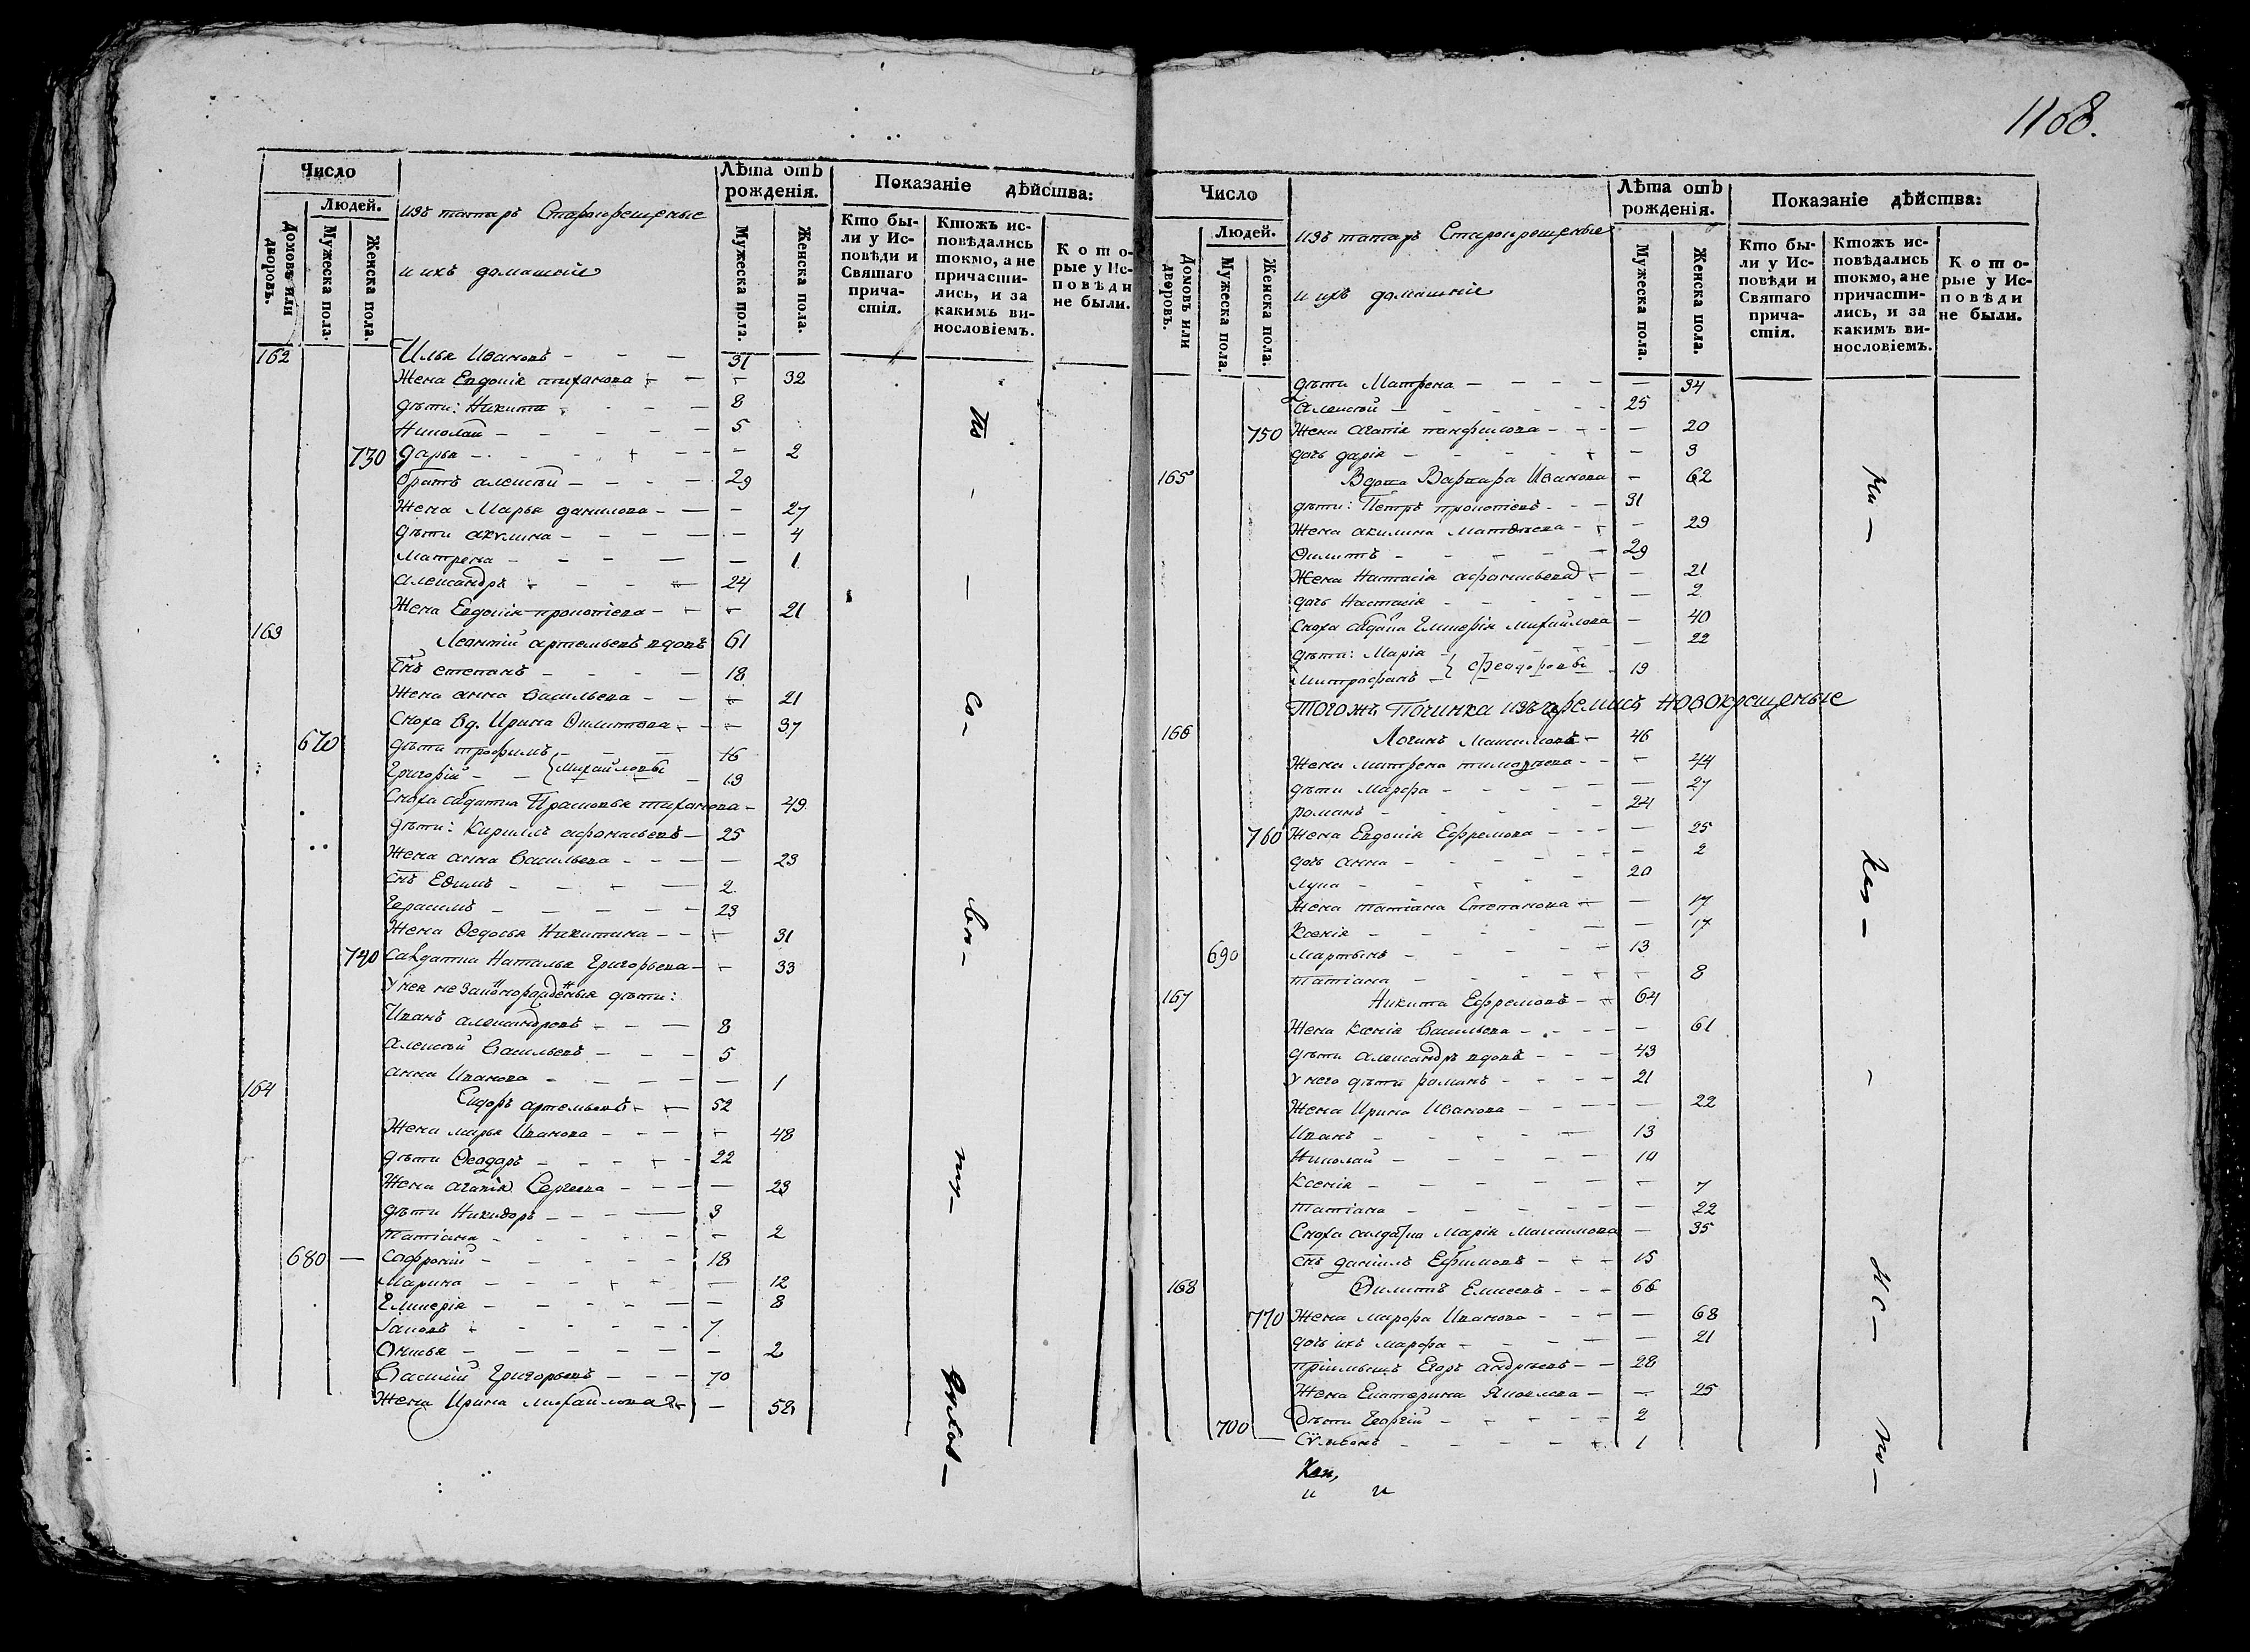 1168.
Число
Людей.
Домовъ или дворовъ.
Мужеска пола.
Женска пола.
изъ татаръ Старокрещеные
и ихъ домашніе
Лѣта отъ рожденія.
Мужеска пола.
Женска пола.
Показаніе дѣйства:
Кто были у Исповѣди и Святаго причастія.
Ктожъ исповѣдались токмо, а не причастились, и за какимъ винословіемъ.
Которые у Исповѣди не были.
162 Илья Ивановъ - - - 31
Жена Евдокія тиханова - - - 32
дѣти: Никита - - - 8
Николай - - - - - 5
730 Дарья - - - - - - 2
братъ алексѣй - - - - 29
Жена Марья данилова - - - 27
дѣти акулина - - - - - 4
Матрена - - - - - 1
александръ - - - - 24
Жена Евдокія прокопіева - - - 21
163 Леонтій артемьевъ вдовъ 61
Сынъ степанъ - - - - 18
Жена анна Васильева - - - 21
Сноха Вд. Ирина Филиппова - - 37
670 дѣти трофимъ - - - 16
Григорій - - { Михайловы - 13
Сноха салдатка Прасковья тиханова - 49
дѣти: Кирилъ афонасьевъ - 25
Жена анна Васильева - - - - 23
снъ Ефимъ - - - - 2
Герасимъ - - - - - 23
Жена Ѳедосья Никитина - - - 31
740 Салдатка Наталья Григорьева - - 33
У нея незаконнорожденыя дѣти:
Иванъ александровъ - - - 8
алексѣй Васильевъ - - - 5
анна Иванова - - - - - 1
164 Сидоръ артемьевъ - - 52
Жена марья Иванова - - - - 48
дѣти Ѳеодоръ - - - - - 22
Жена агапія Сергеева - - - - 23
дѣти Никифоръ - - - - 3
татіана - - - - - - 2
680 - Софроній - - - - - 18
Марина - - - - - - 12
Гликерія - - - - - - 8
Іаковъ - - - - - - 7
Васи­лій Григорьевъ - - - 70
Жена Ирина михайлова - - 52
Число
Людей.
Домовъ или дворовъ.
Мужеска пола.
Женска пола.
изъ татаръ Старокрещеные
и ихъ домашніе
Лѣта отъ рожденія.
Мужеска пола.
Женска пола.
Показаніе дѣйства:
Кто были у Исповѣди и Святаго причастія.
Ктожъ исповѣдались токмо, а не причастились, и за какимъ винословіемъ.
Которые у Исповѣди не были.
дѣти Матрена - - - - - 34
алексѣй - - - - - - 25
750 Жена агапія панфилова - - - - 20
дочь дарія - - - - - - 3
165 Вдова Варвара Иванова - 62
дѣти: Петръ прокопіевъ - - - 31
Жена акилина Матѳѣева - - - 29
Филипъ - - - - - 29
Жена Настасія афонасьева - - 21
дочь Настасія - - - - - - 2
Сноха салдатка Гликерія михайлова - 40
дѣти: Марія - - - - 22
Митрофанъ - { Ѳеодоровы - 19
Тогожъ Починка изъ черемисъ новокрещеные
166 Логинъ Максимовъ - 46
Жена матрена тимоѳѣева - - - 44
дѣти марфа - - - - - - 27
романъ - - - - - 24
760 Жена Евдокія Ефремова - - - - 25
дочь анна - - - - - - 2
Лука - - - - - 20
Жена татіана Степанова - - 17
Ксенія - - - - - - 17
690 мартынъ - - - - - 13
татіана - - - - - - 8
167 Никита Ефремовъ - - 64
Жена ксенія Васильева - - - - - 61
дѣти александръ вдовъ - - - 43
У него дѣти романъ - - - - 21
Жена Ирина Иванова - - - - - 22
Иванъ - - - - - 13
Николай - - - - - 10
Ксенія - - - - - - 7
татіана - - - - - - 22
Сноха салдатка Марія Максимова - 35
снъ даніилъ Ефимовъ - - - 15
168 Филиппъ Елисеевъ - - - 66
770 Жена марфа Иванова - - - - 68
дочь ихъ марфа - - - - - 21
пріимышъ Егоръ андрѣевъ - - 28
Жена Екатерина Яковлева - - 25
700 дѣти Георгій - - - - - 2
Сѵмеонъ - - - - - 1
по - - - со - во - му - духов -
ни - ка - - не - по -